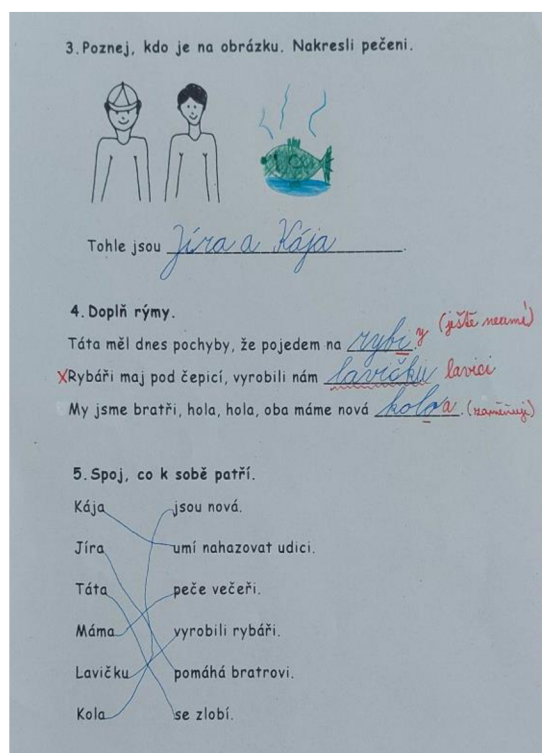 3. Poznej, kdo je na obrázku. Nakresli pečeni.
Tohle jsou Jíra a Kája.
4. Doplň rýmy.
Táta měl dnes pochyby, že pojedem na rybi. y (ještě neumí)
x Rybáři maj pod čepicí, vyrobili nám lavičku lavici
My jsme bratři, hola, hola, oba máme nová kolo a. (zaměňují)
5. Spoj, co k sobě patří.
Kája jsou nová.
Jíra umí nahazovat udici.
Táta peče večeři.
Máma vyrobili rybáři.
Lavičku pomáhá bratrovi.
Kola se zlobí.